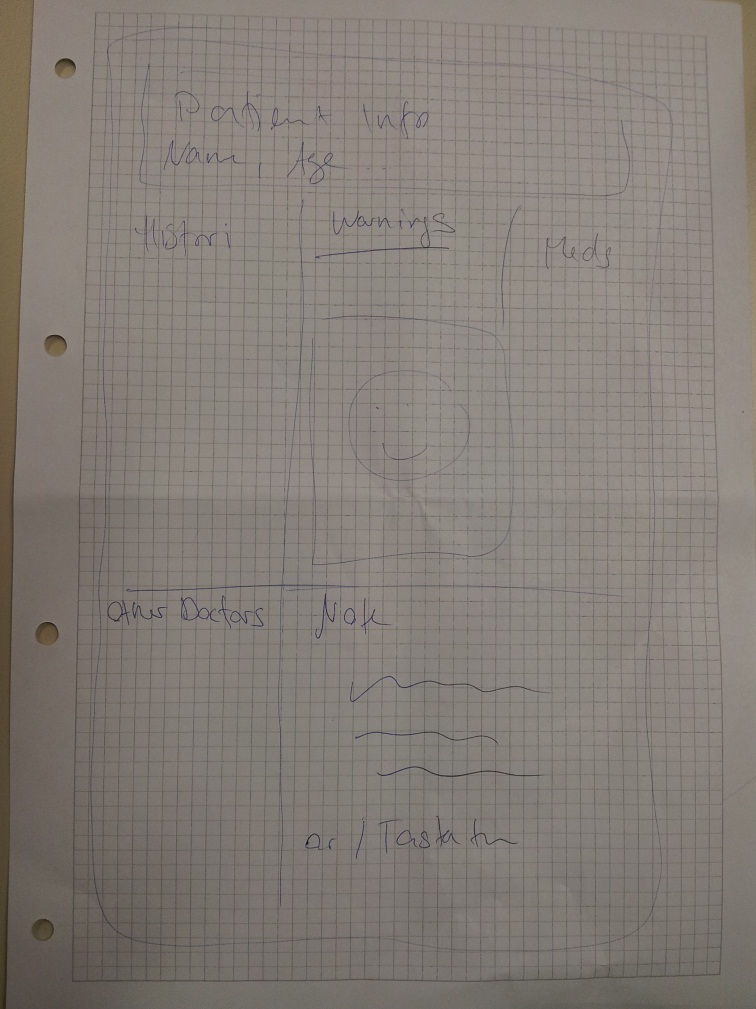 Patient Info
Name, Age ...
Histori
Warnings
Meds
Other Doctors
Note
or / Tastatur